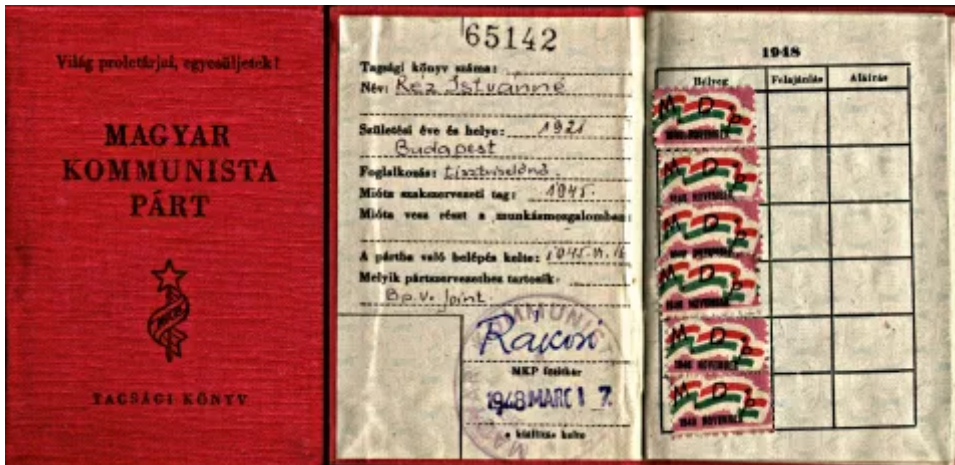 Világ proletárjai, egyesüljetek!
MAGYAR
KOMMUNISTA
PÁRT
TAGSÁGI KÖNYV
65142
Tagsági könyv száma:
Név: Réz Istvánné
Születési éve és helye: 1921
Budapest
Foglalkozás: tisztviselőnő.
Mióta szakszervezeti tag: 1945.
Mióta vesz részt a munkásmozgalomban:
A pártba való belépés kelte: 1945. 
Melyik pártszervezethez tartozik:
Bp. V. Joint.
Rákosi
MKP főtitkár
1948 MARC 1 7.
a kiállítás kelte
1948
Bélyeg Felajánlás Aláírás
M D P
1948 NOVEMBER
M D P
1948 NOVEMBER
M D P
1948 NOVEMBER
M D P
1948 NOVEMBER
M D P
1948 NOVEMBER
M D P
1948 NOVEMBER